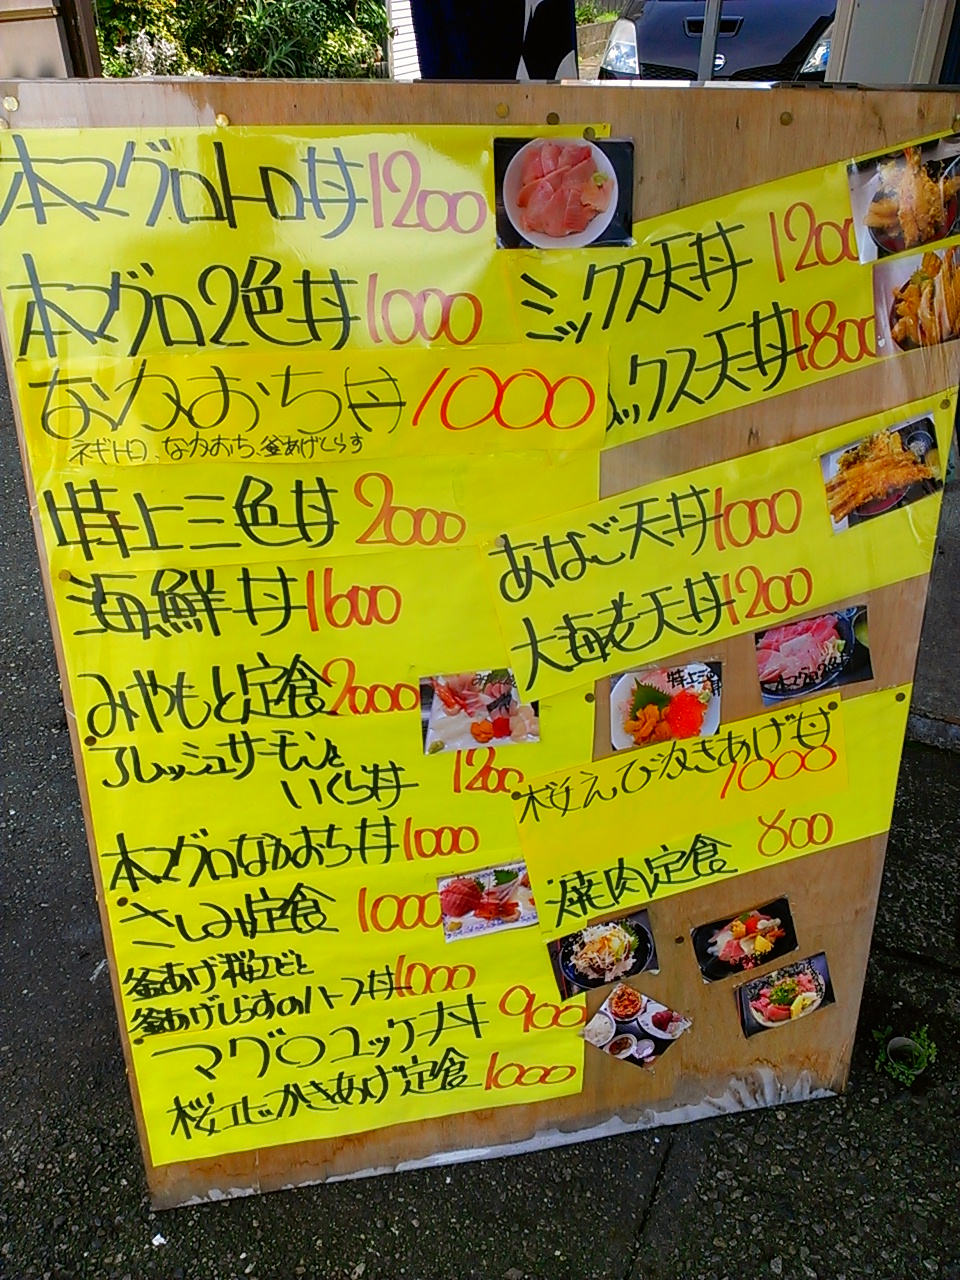 本マグロトロ丼1200
本マグロ2色丼1000
なかおち丼1000
ネギトロ、なかおち、釜あげしらす
特上三色丼2000
海鮮丼1600
みやもと定食2000
フレッシュサーモンと
いくら丼 1200
本マグロなかおち丼1000
さしみ定食1000
釜あげ桜エビと
釜あげしらすのハーフ丼1000
マグロユッケ丼900
桜エビかきあげ定食1000
ミックス天丼1200
ックス天丼1800
あなご天丼1000
大海老天丼1200
特上三色丼
本マグロ2色丼
桜えびかきあげ丼
1000
焼肉定食 800